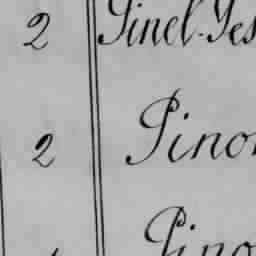 2 Pinel-Yes
2 Pino
Pino